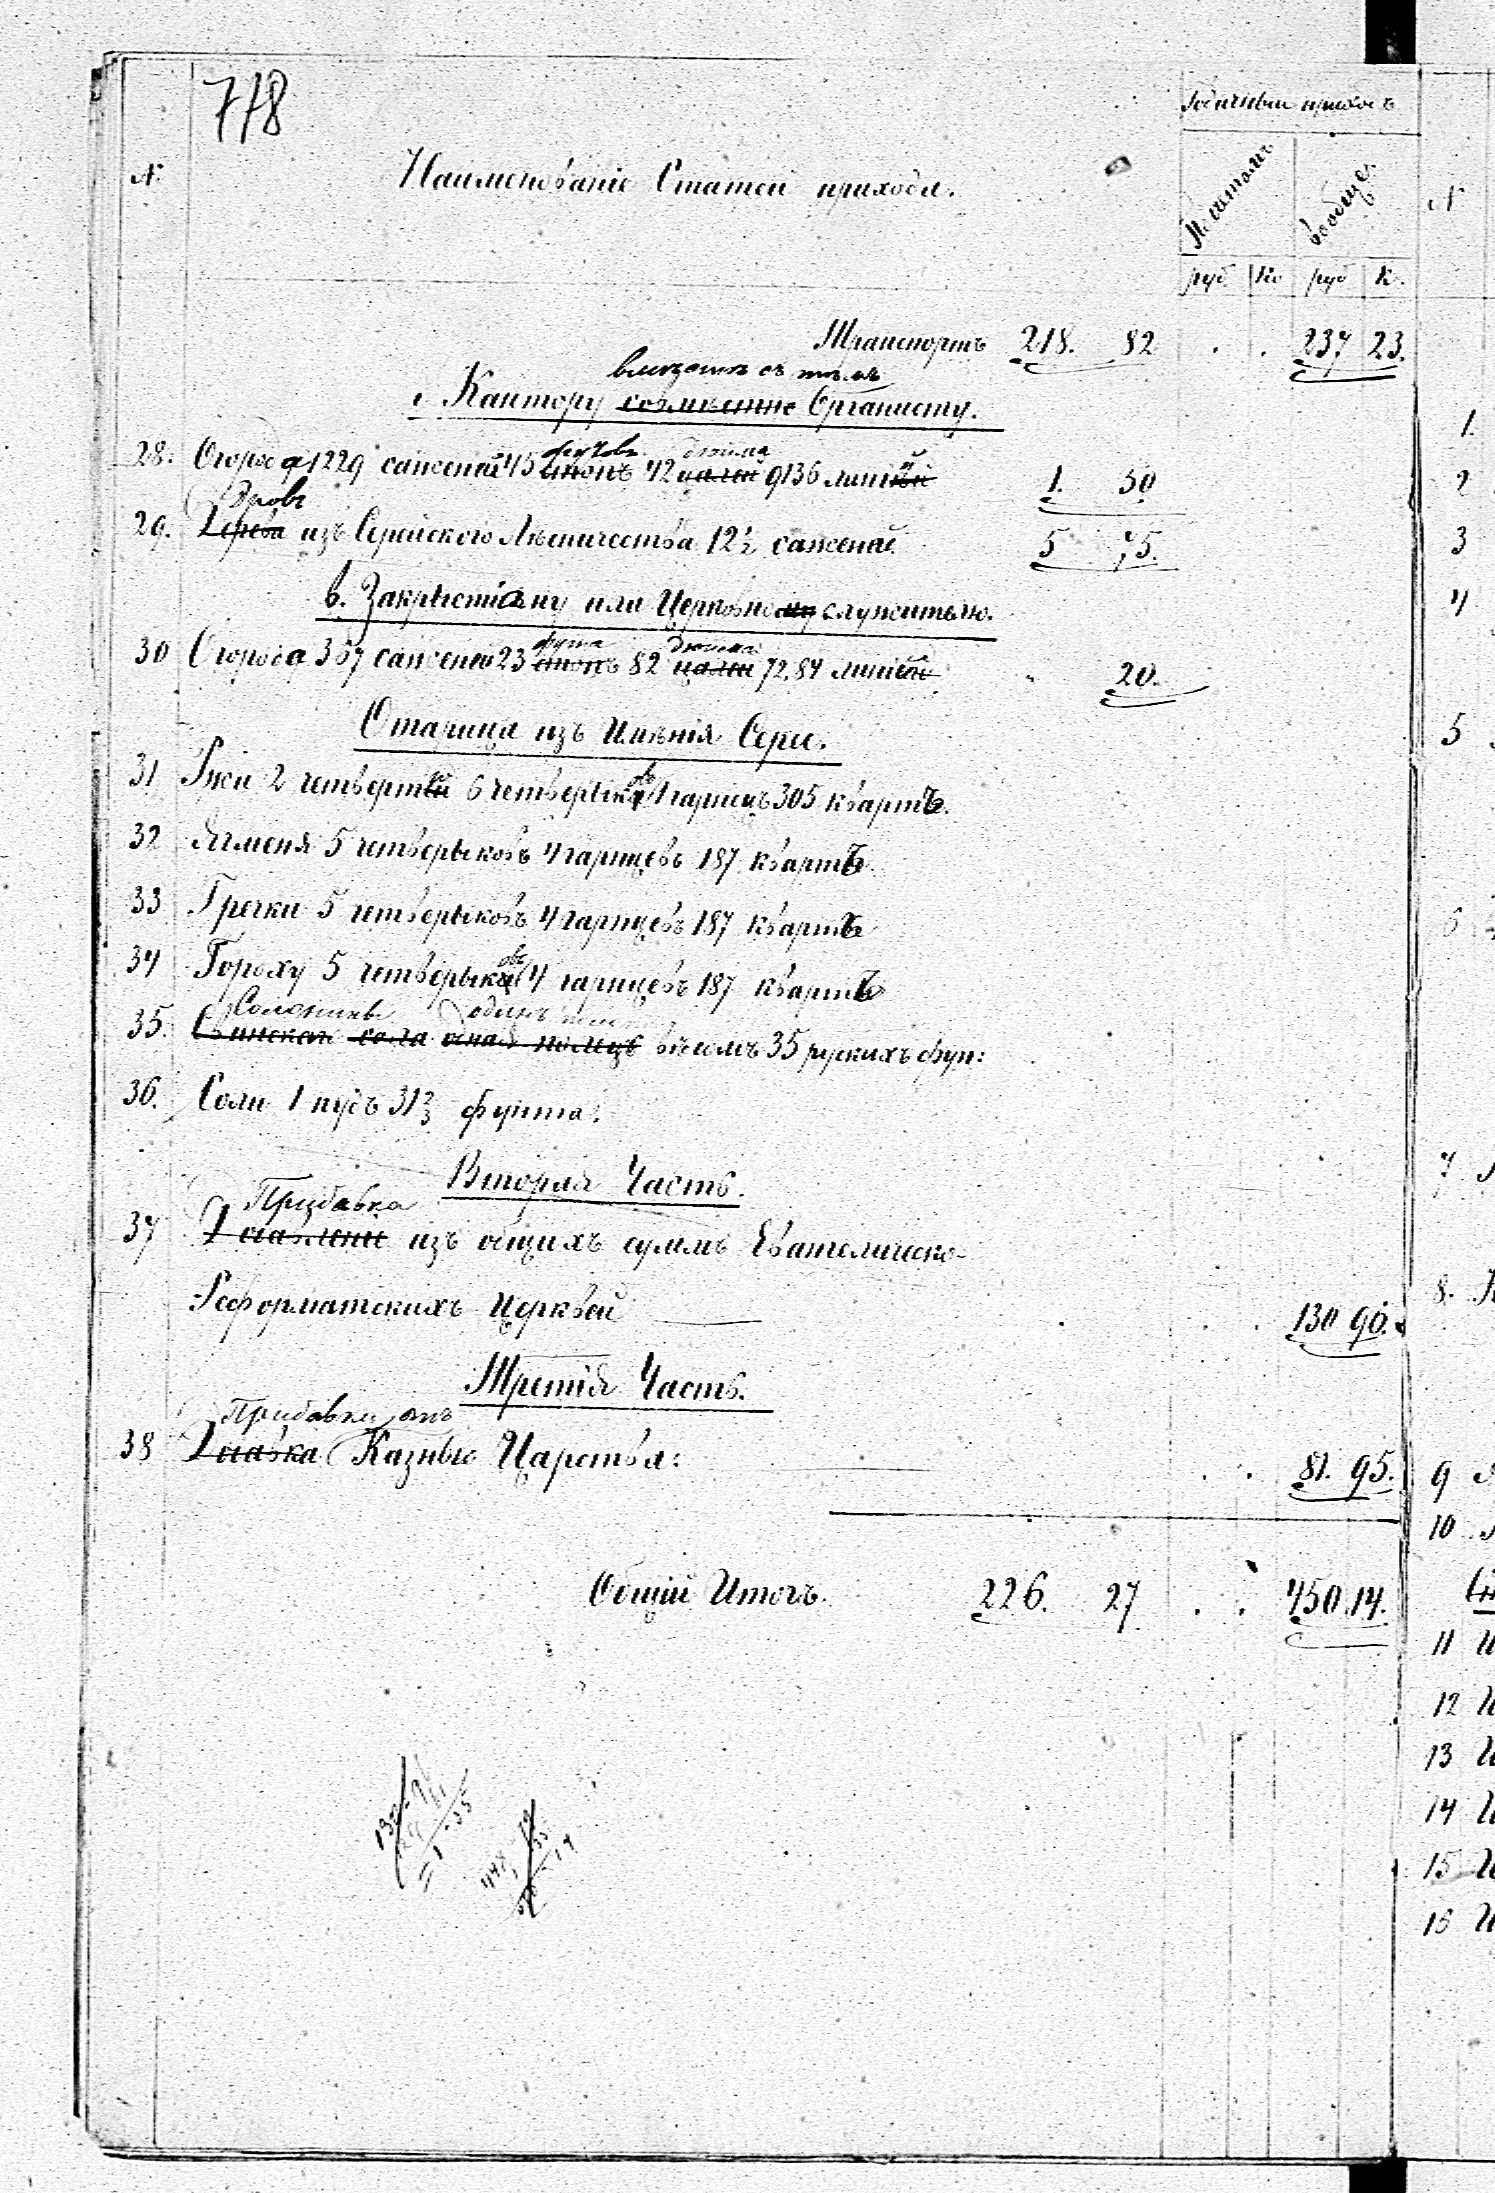 778
Годичный приходъ
№
Наименованіе Статей прихода.
вообще.
№
руб Ко руб К.
Транспортъ 218. 82 . . 237 23.
вмѣстѣ съ тѣмъ
Кантору совмѣстно Органисту.
1.
футовъ дюйма
28. Огорода 1229 саженей 45 стопъ 42 цалей 9136 линій
1. 50
2
Дровъ
29. Дерева изъ Серейского Лѣсничества 12½ саженей
5 75.
3
в. Закрыстіану или Церковному служителю.
4
фута дюйма
30 Огорода 367 саженей 23 стопъ 82 цали 72,84 линій
20.
Отарица изъ Имѣнія Сереи.
5
31 Ржи 2 четверти 6 четвериковъ 1 гарнецъ 305 квартъ.
32 Ячменя 5 четвериковъ 4 гарнцевъ 187 квартъ
33 Гречки 5 четвериковъ 4 гарнцевъ 187 квартъ
6
34 Гороху 5 четвериковъ 4 гарнцевъ 187 квартъ
Солонины одинъ
35. Свинского сала вѣсомъ 35 руских фун:
36. Соли 1 пудъ 31⅔ фунта.
Вторая Часть.
7
Прибавка
37 изъ общихъ суммъ Евангелическо-
Реформатскихъ Церквей
130 90.
8.
Третія Часть.
Прибавки отъ
38 Казны Царства:
81. 95.
9
10
Общій Итогъ. 226. 27 . . 450.14.
11 И
12 И
13 И
14 И
15 И
16 И